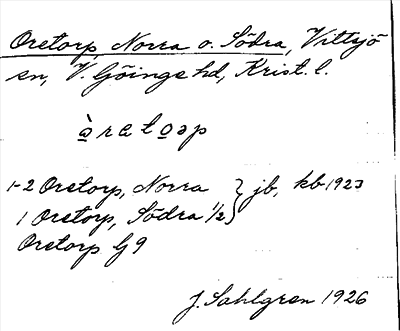 Oretorp Norra o. Södra, Vittsjö
sn, V. Göinge hd, Krist. l.
1-2 Oretorp, Norra } jb, kb 1923
1 Oretorp, Södra 1/2
Oretorp G9
J. Sahlgren 1926